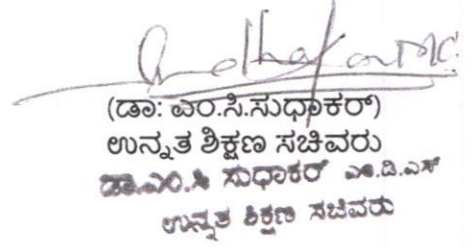 (ಡಾ: ಎಂ.ಸಿ.ಸುಧಾಕರ್)
ಉನ್ನತ ಶಿಕ್ಷಣ ಸಚಿವರು
ಡಾ.ಎಂ.ಸಿ ಸುಧಾಕರ್ ಎಂ.ಡಿ.ಎಸ್
ಉನ್ನತ ಶಿಕ್ಷಣ ಸಚಿವರು